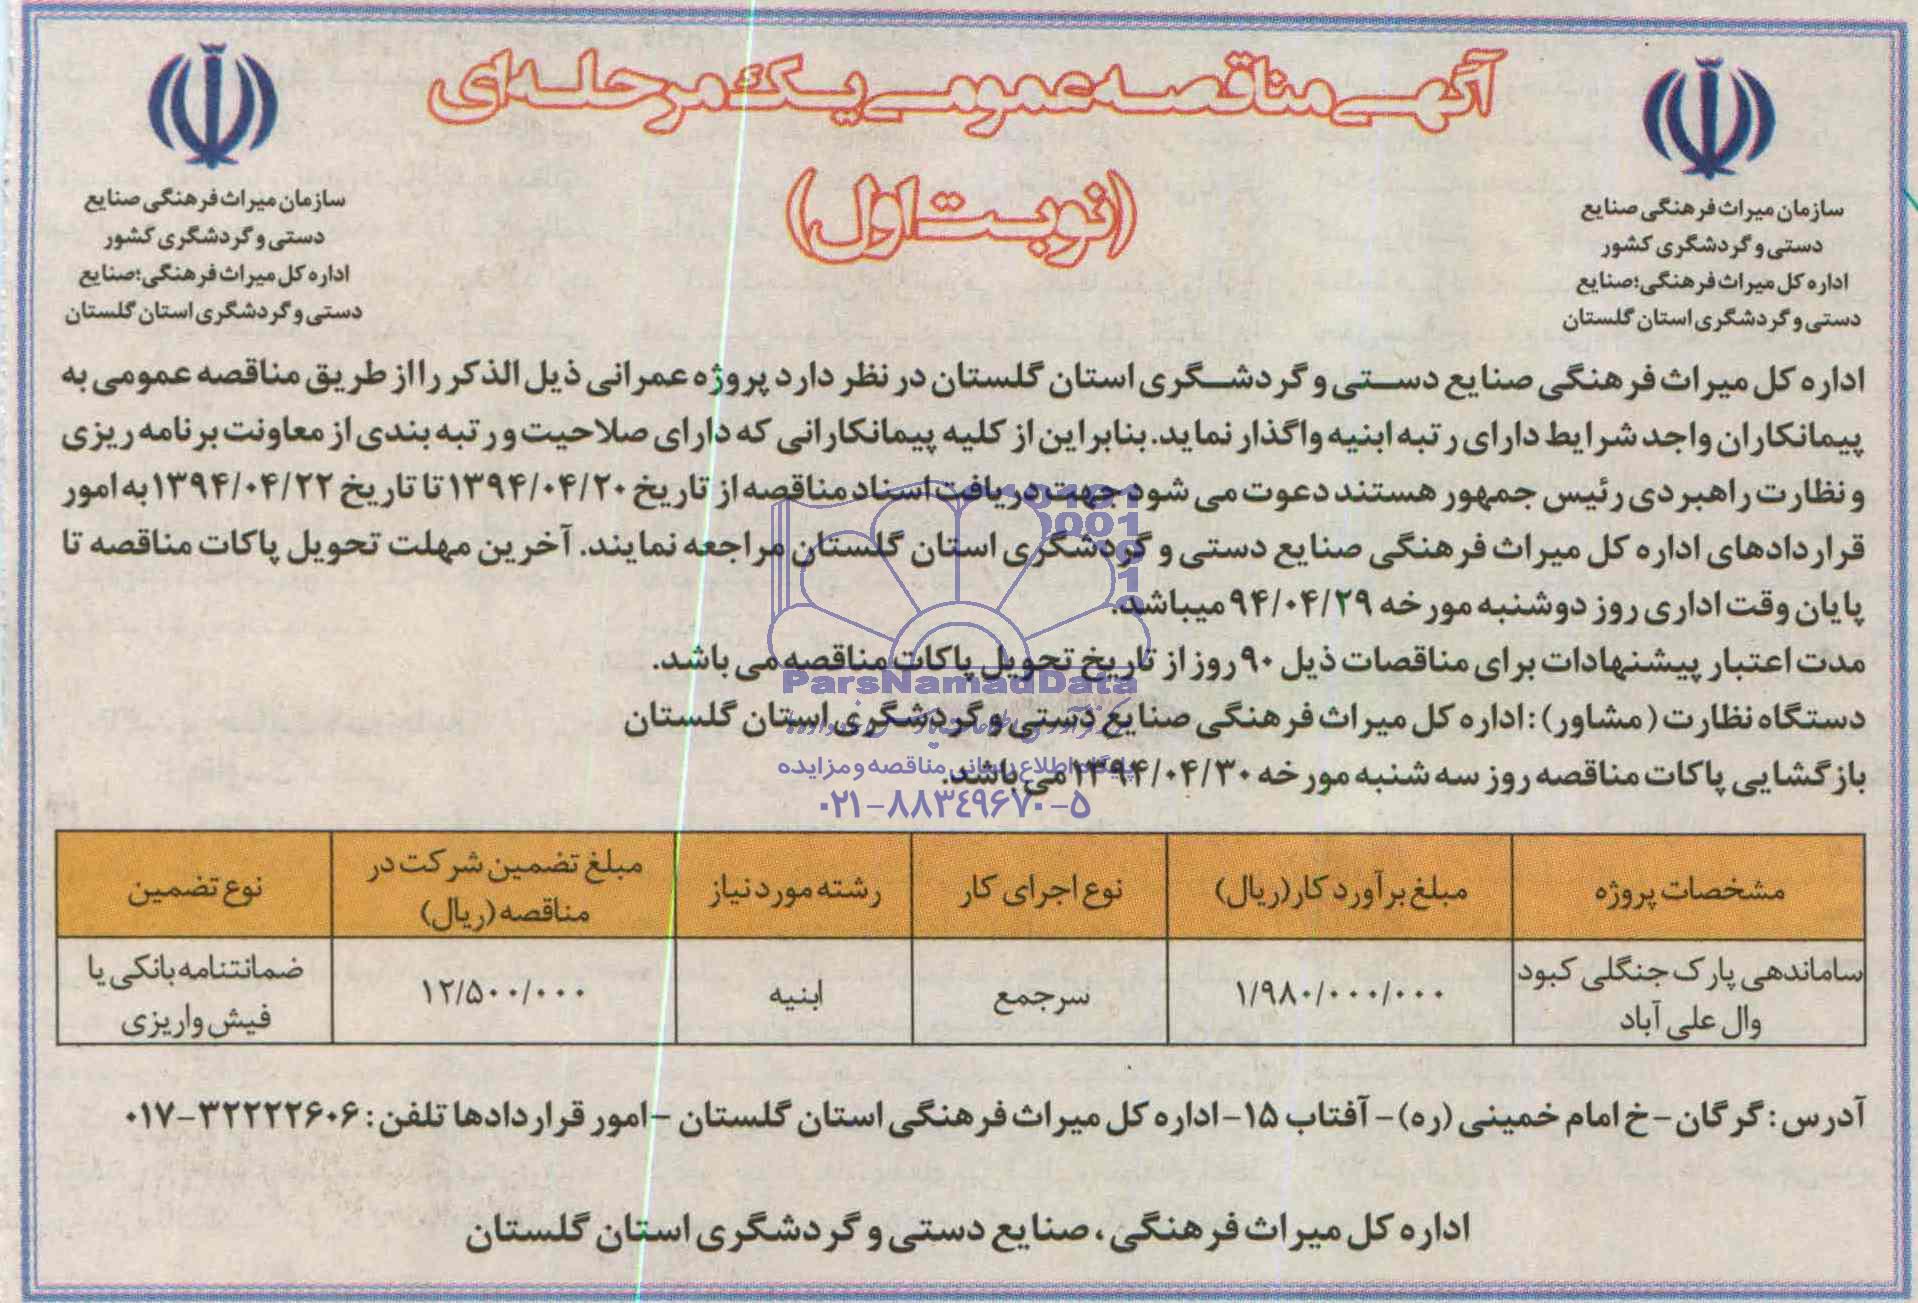 آگهی مناقصه عمومی یک مرحله ای
(نوبت اول)
سازمان میراث فرهنگی صنایع
دستی و گردشگری کشور
اداره کل میراث فرهنگی؛ صنایع
دستی و گردشگری استان گلستان
سازمان میراث فرهنگی صنایع
دستی و گردشگری کشور
اداره کل میراث فرهنگی؛ صنایع
دستی و گردشگری استان گلستان
اداره کل میراث فرهنگی صنایع دستی و گردشگری استان گلستان در نظر دارد پروژه عمرانی ذیل الذکر را از طریق مناقصه عمومی به
پیمانکاران واجد شرایط دارای رتبه ابنیه واگذار نماید. بنابراین از کلیه پیمانکارانی که دارای صلاحیت و رتبه بندی از معاونت برنامه ریزی
و نظارت راهبردی رئیس جمهور هستند دعوت می شود جهت دریافت اسناد مناقصه از تاریخ ۱۳۹۴/۰۴/۲۰ تا تاریخ ۱۳۹۴/۰۴/۲۲ به امور
قراردادهای اداره کل میراث فرهنگی صنایع دستی و گردشگری استان گلستان مراجعه نمایند. آخرین مهلت تحویل پاکات مناقصه تا
پایان وقت اداری روز دوشنبه مورخه ۹۴/۰۴/۲۹ میباشد.
مدت اعتبار پیشنهادات برای مناقصات ذیل ۹۰ روز از تاریخ تحویل پاکات مناقصه می باشد.
دستگاه نظارت (مشاور): اداره کل میراث فرهنگی صنایع دستی و گردشگری استان گلستان
بازگشایی پاکات مناقصه روز سه شنبه مورخه ۱۳۹۴/۰۴/۳۰ می باشد.
ParsNamadData
پایگاه اطلاع رسانی مناقصه و مزایده
۰۲۱-۸۸۳۴۹۶۷۰-۵
مشخصات پروژه
مبلغ برآورد کار (ریال)
نوع اجرای کار
رشته مورد نیاز
مبلغ تضمین شرکت در
مناقصه (ریال)
نوع تضمین
ساماندهی پارک جنگلی کبود
وال علی آباد
۱/۹۸۰/۰۰۰/۰۰۰
سرجمع
ابنیه
۱۲/۵۰۰/۰۰۰
ضمانتنامه بانکی یا
فیش واریزی
آدرس: گرگان - خ امام خمینی (ره) - آفتاب ۱۵ - اداره کل میراث فرهنگی استان گلستان - امور قراردادها تلفن: ۳۲۲۲۲۶۰۶-۰۱۷
اداره کل میراث فرهنگی، صنایع دستی و گردشگری استان گلستان